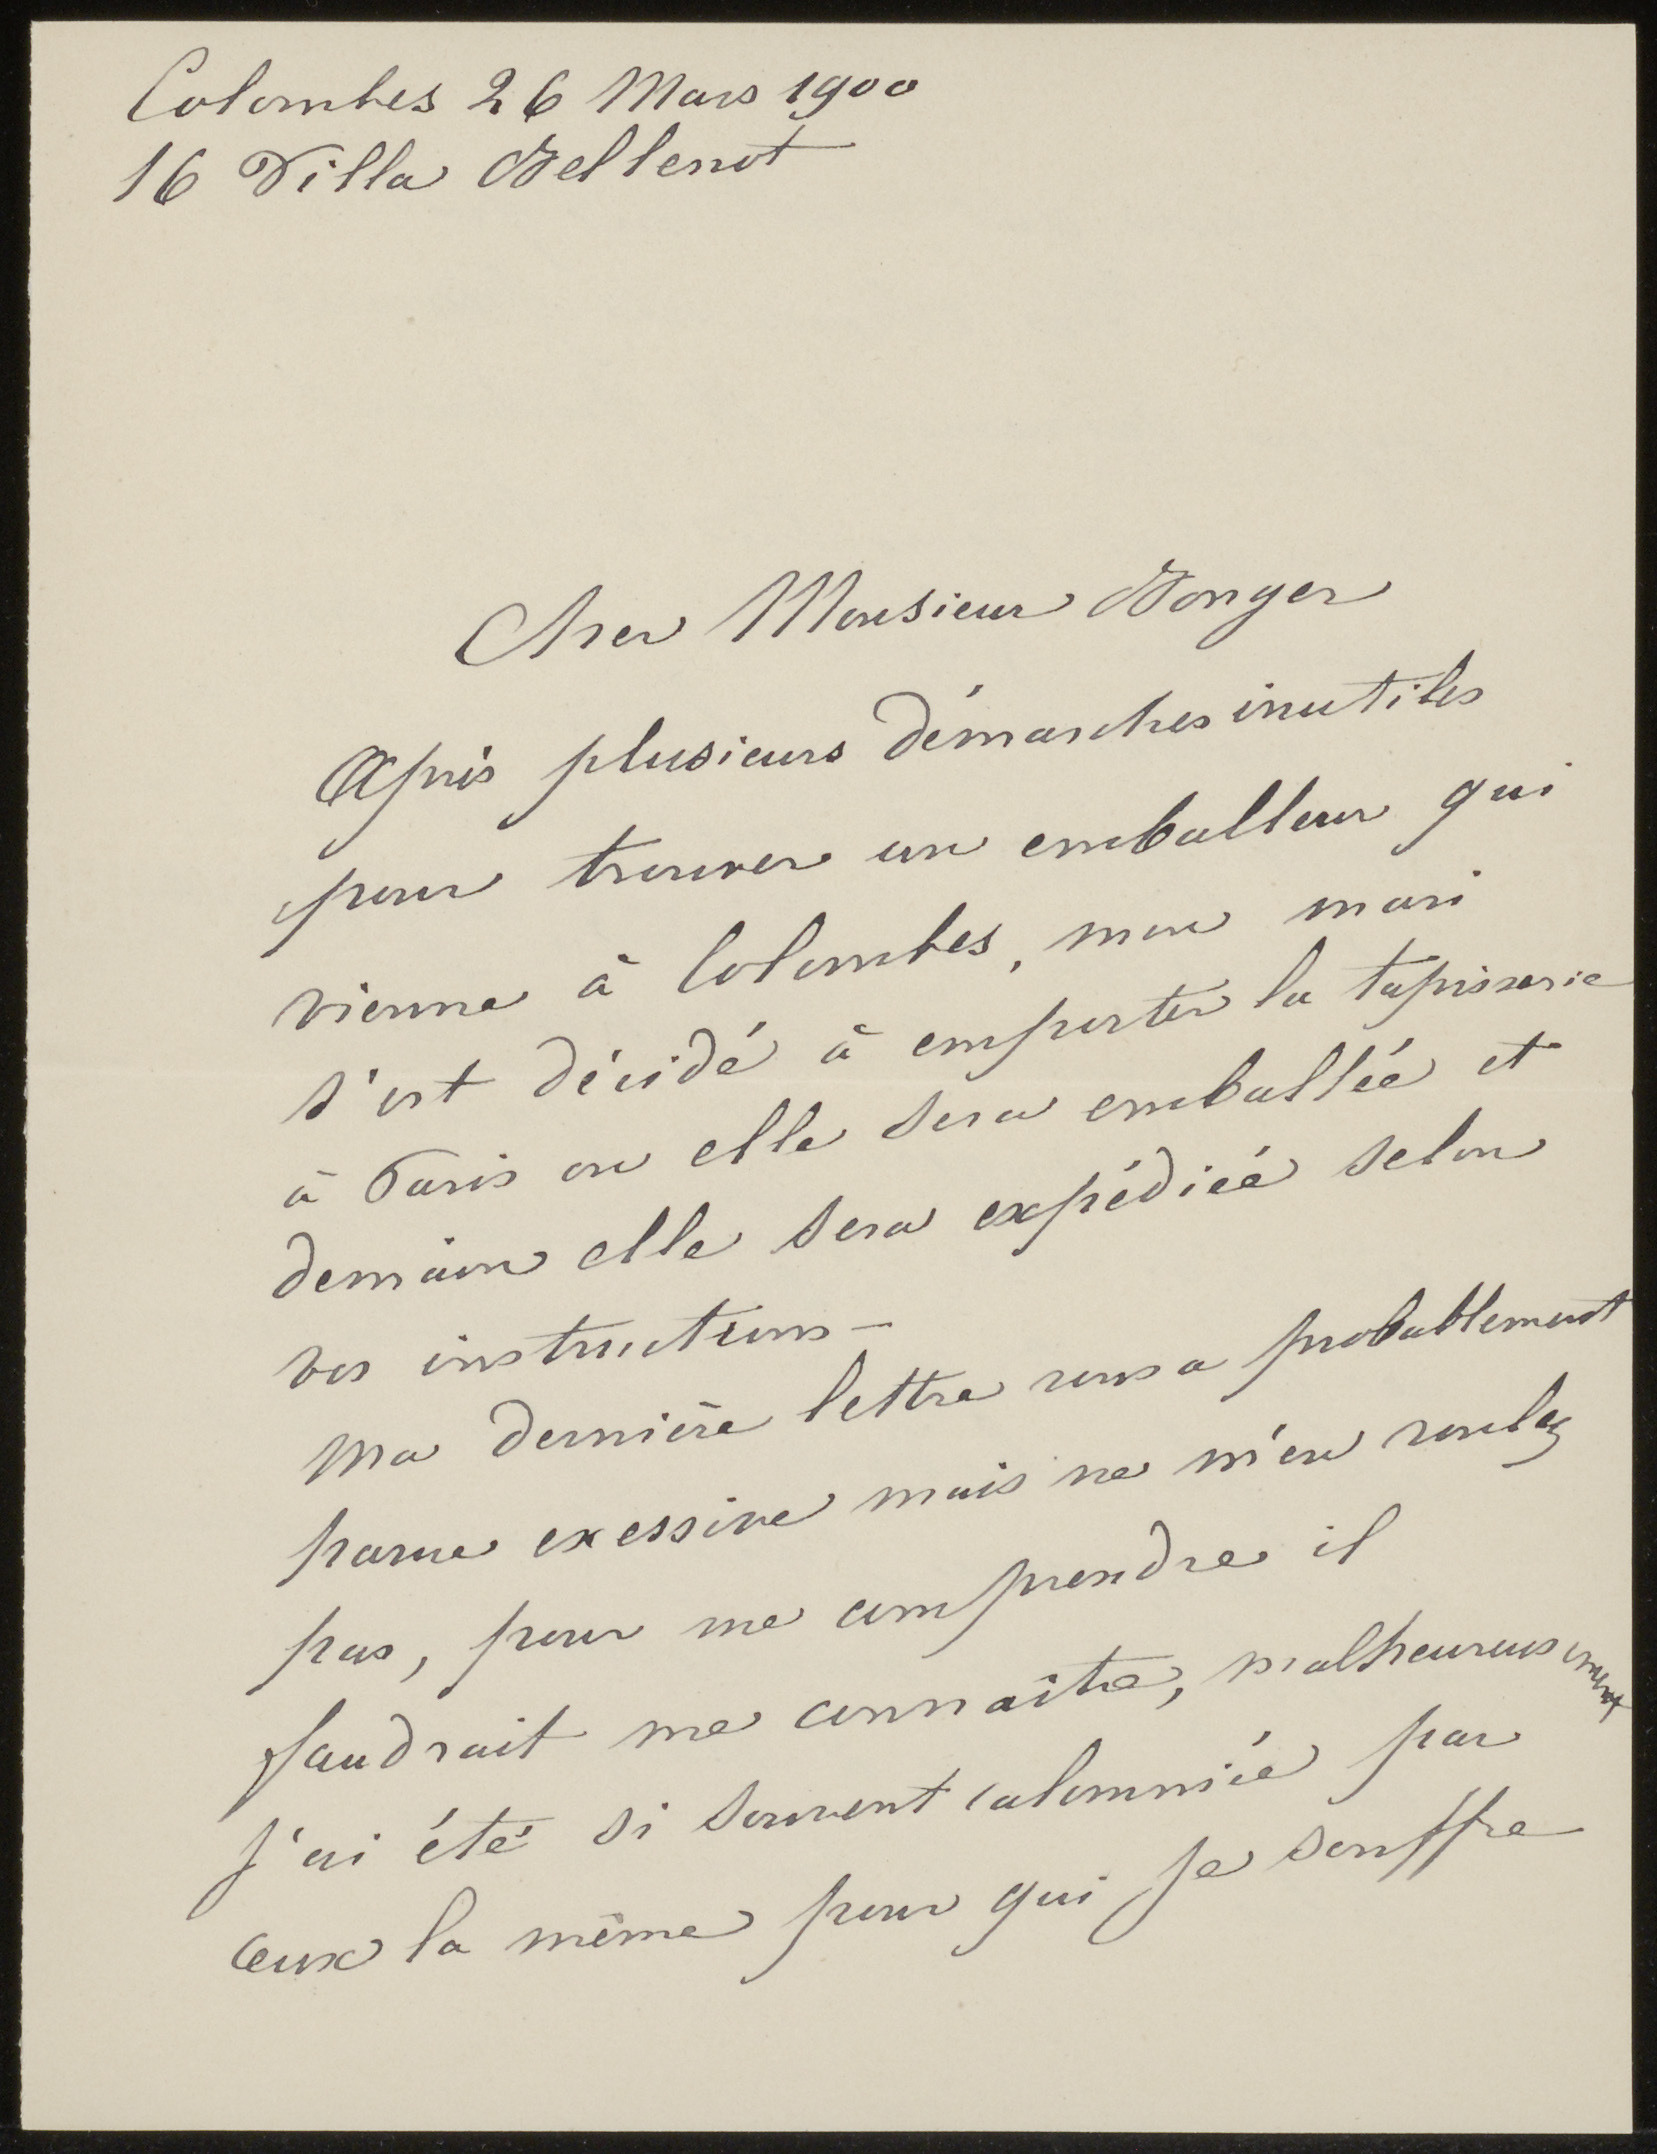 Colombes 26 Mars 1900
16 Villa Bellenot
Cher Monsieur Bonger
Après plusieurs démarches inutiles
pour trouver un emballeur qui
vienne à Colombes, mon mari
s'est décidé à emporter la tapisserie
à Paris ou elle sera emballée et
demain elle sera expédiée selon
vos instructions—
Ma dernière lettre vous a probablement
parue exessive mais ne m'en voulez
pas, pour me comprendre il
faudrait me connaître, malheureusement
j'ai été si souvent calomniée par
ceux la même pour qui je souffre